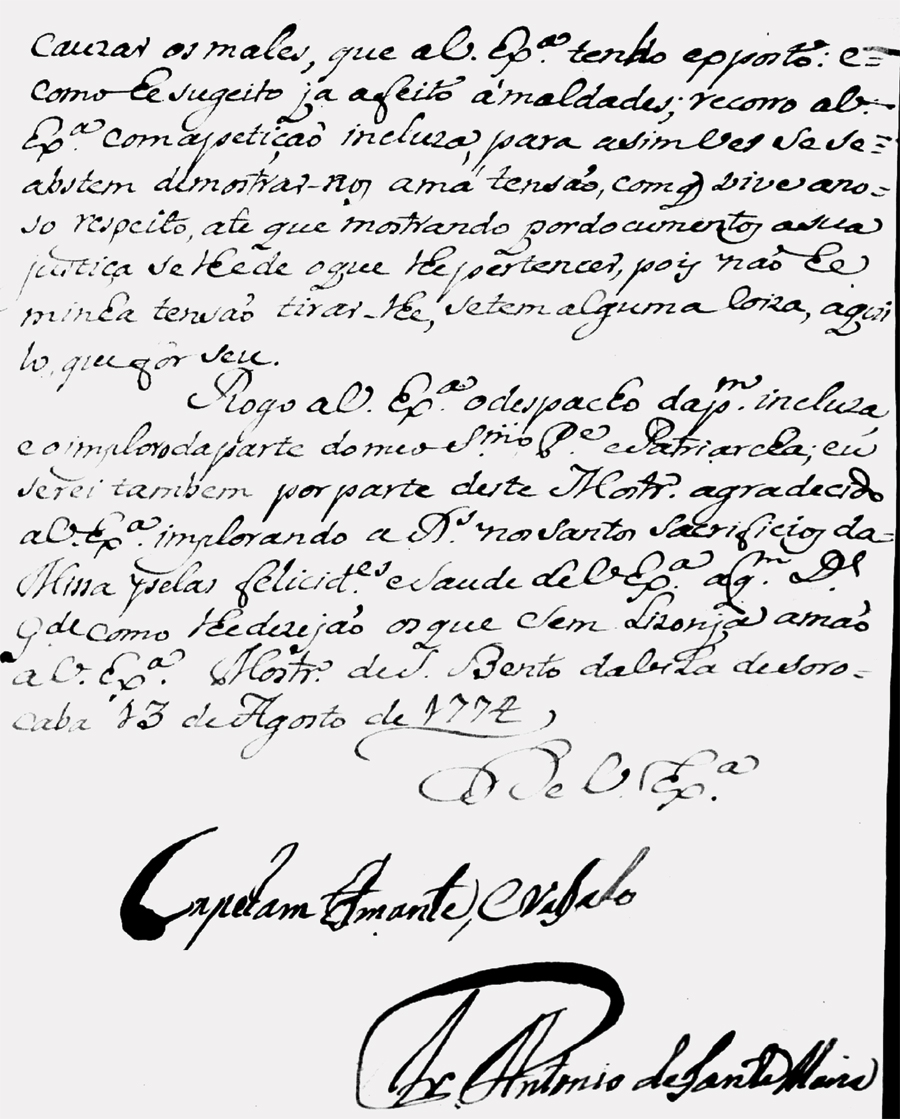 cauzar os males, que a V. Exª. tenho exposto: e=
como he sugeito ja afeito á maldades; recorro a V.
Exª. com a petição incluza, para asim ver se se=
abstem de mostrar-nos a má tensão, com q̃ vive a no=
so respeito, ate que mostrando por documentos a sua
justiça se lhe de o que lhe pertencer, pois não he
minha tensão tirar-lhe, se tem alguma coiza, aqui
lo, que fôr seu.
Rogo a V. Exª. o despacho da pm. incluza
e o imploro da parte do meo Smo. Pe. e Patriarcha; eu
serei tambem por parte deste Mostr. agradecido
a V. Exª. implorando a Ds. nos Santos Sacrificios da=
Missa pelas felicides. e Saude de V Exª. a qm. Ds
gde como lhe dezejão os que sem Lizonja amão
a V. Exª. Mostr. de S. Bento da Vila de Soro=
caba 13 de Agosto de 1774
De V. Exª.
Capelam Amante, e Vasalo
Fr. Antonio de Santa Maria